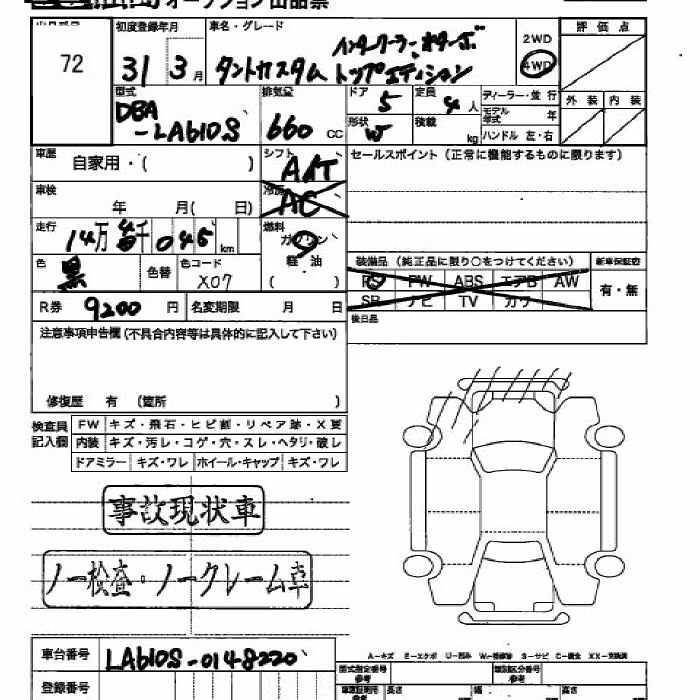 オークション出品票
初度登録年月 車名・グレード 評価点
72
31 3月
インタークーラーターボ
タントカスタム トップエディション
2WD
4WD
型式
DBA
-LA610S
排気量
660 cc
ドア
5
定員
4 人
ディーラー・並行
モデル年式 年
ハンドル 左・右
外装 内装
形状
W
積載
kg
車歴
自家用・( )
シフト
AAT
セールスポイント (正常に機能するものに限ります)
車検
年 月( 日)
冷房
AC
走行
14万 千045 km
燃料
ガソリン
軽油
( )
色
黒
色替
色コード
X07
装備品 (純正品に限り○をつけてください) 新車保証書
PS PW ABS エアB AW
SR ナビ TV カワ
有・無
R券 9200 円 名変期限 月 日
後日品
注意事項申告欄 (不具合内容等は具体的に記入して下さい)
修復歴 有 (箇所 )
検査員記入欄
FW キズ・飛石・ヒビ割・リペア跡・X要
内装 キズ・汚レ・コゲ・穴・スレ・ヘタリ・破レ
ドアミラー キズ・ワレ ホイール・キャップ キズ・ワレ
事故現状車
ノー検査・ノークレーム車
A-キズ E-エクボ U-凹み W-補修跡 S-サビ C-腐食 XX-交換済
車台番号 LA610S-0148220
登録番号
型式指定番号
参考
類別区分番号
参考
長さ 幅 高さ